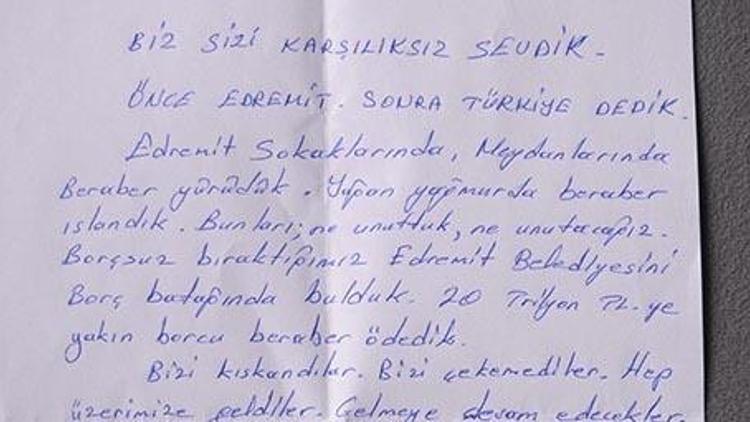 BİZ SİZİ KARŞILIKSIZ SEVDİK -
ÖNCE EDREMİT. SONRA TÜRKİYE DEDİK.
Edremit Sokaklarında, Meydanlarında
Beraber yürüdük. Yağan yağmurda beraber
ıslandık. Bunları; ne unuttuk, ne unutacağız.
Borçsuz bıraktığımız Edremit Belediyesini
Borç batağında bulduk. 20 Trilyon TL.ye
yakın borcu beraber ödedik.
Bizi kıskandılar. Bizi çekemediler. Hep
üzerimize geldiler. Gelmeye devam edecekler.